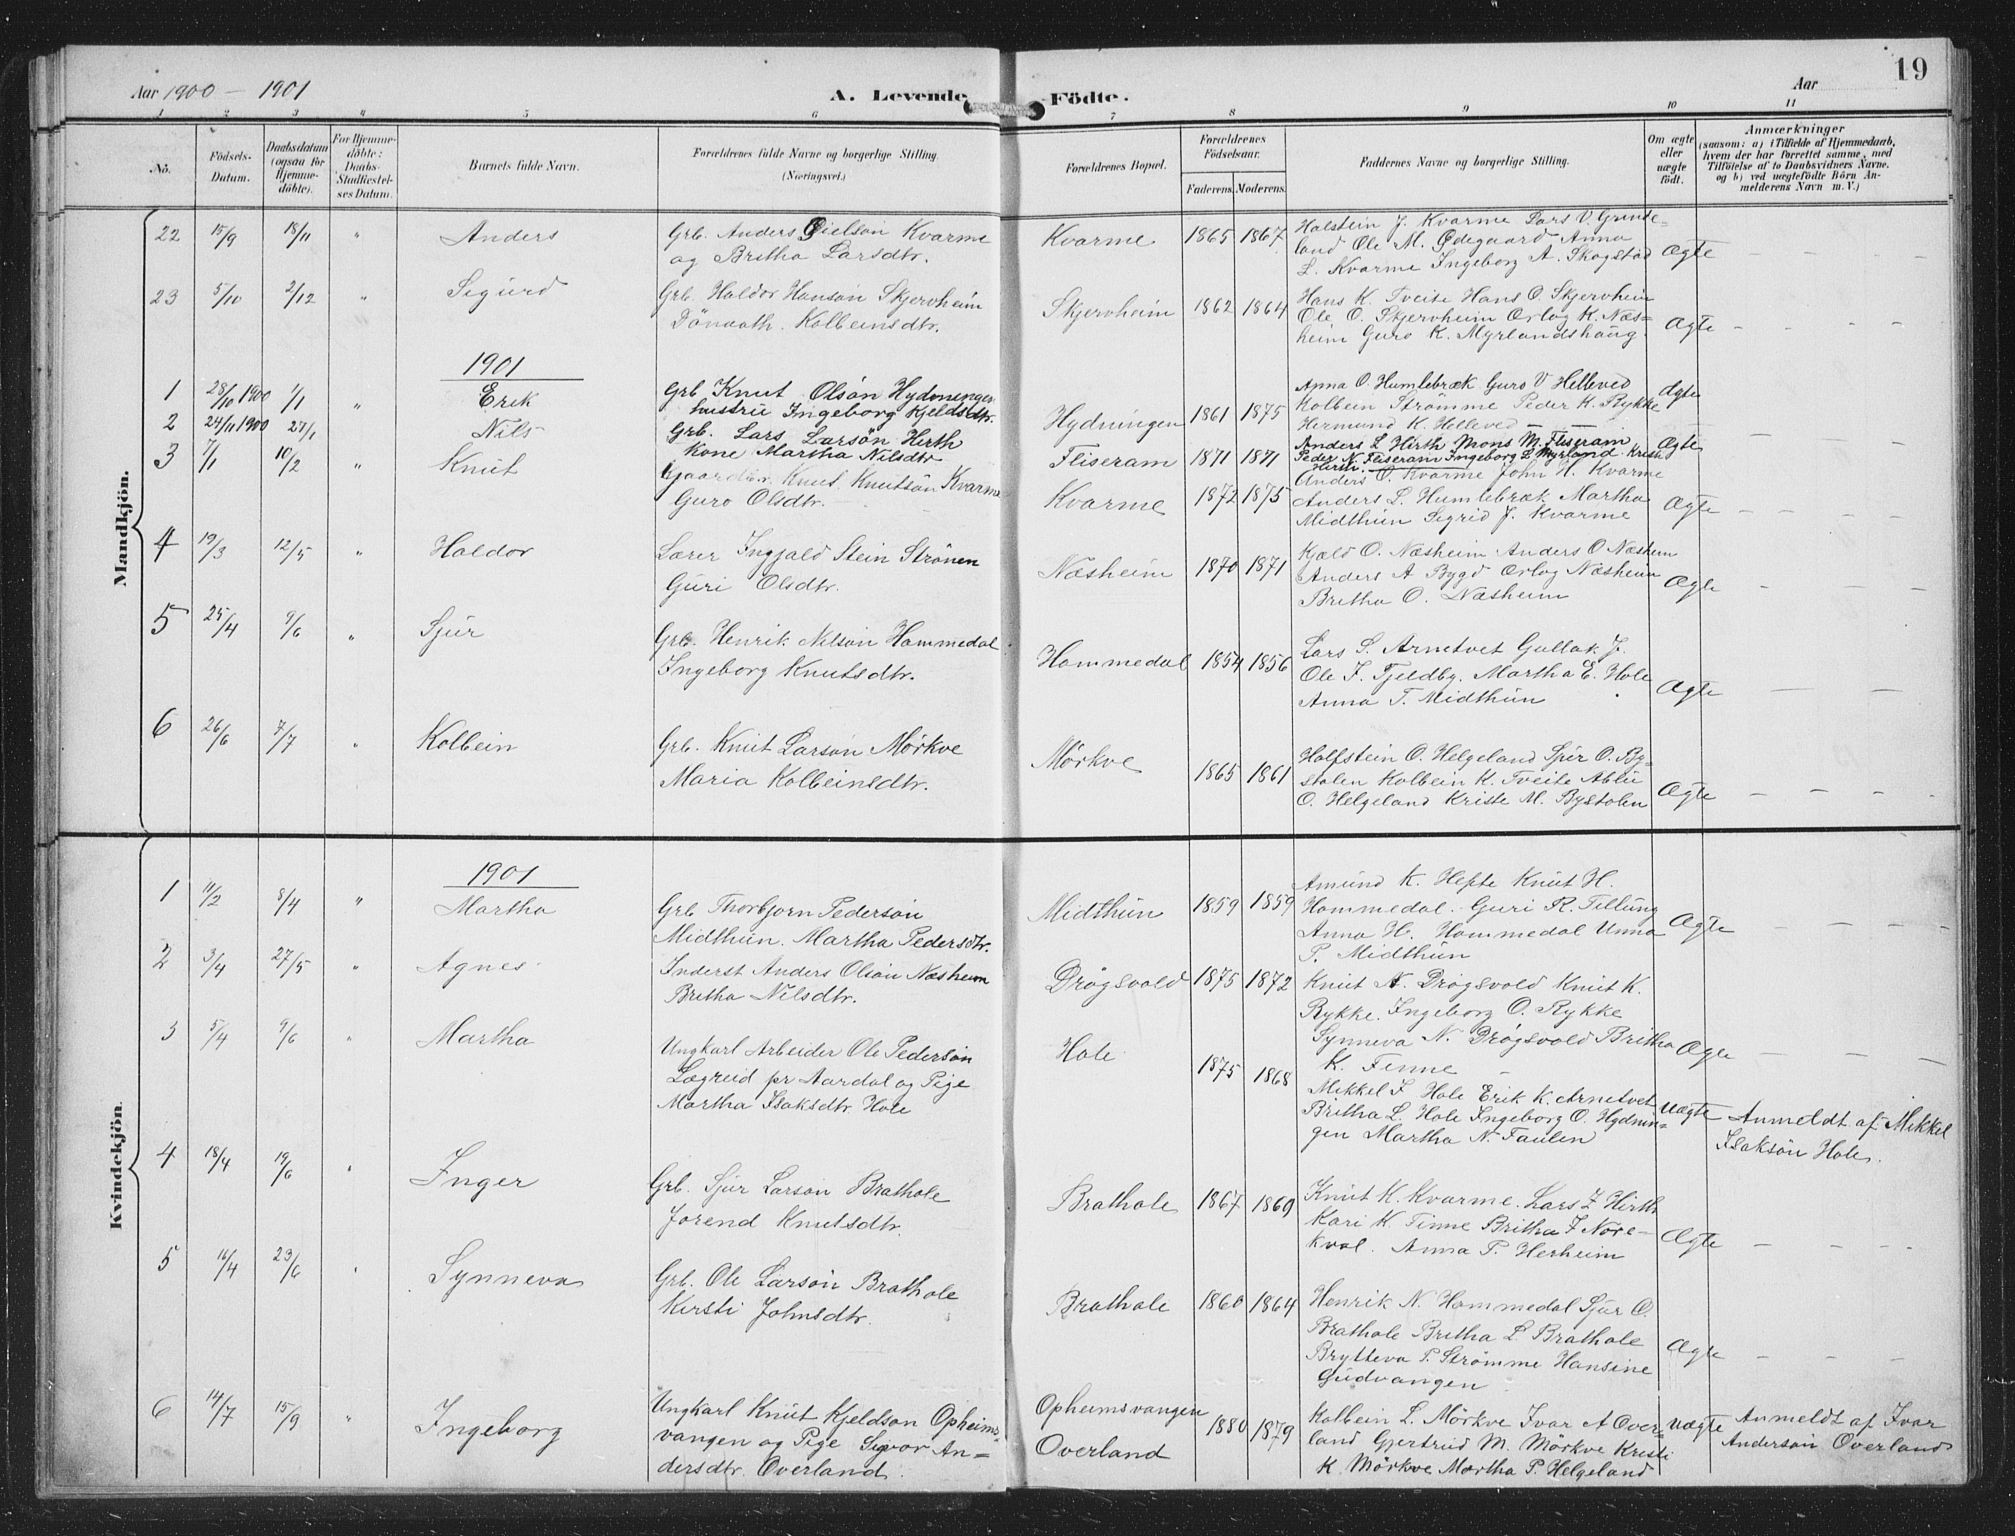 Aar 1900 – 1901
A. Levende Födte.
Aar
19
1 2 3 4 5 6 7 8 9 10 11
No.
Födsels-Datum.
Daabsdatum (ogsaa for Hjemmedöbte).
For Hjemmedöbte: Daabs-Stadfæstelses Datum.
Barnets fulde Navn.
Forældrenes fulde Navne og borgerlige Stilling. (Næringsvei.)
Forældrenes Bopæl.
Forældrenes Födselsaar.
Faderens. Moderens.
Faddernes Navne og borgerlige Stilling.
Om ægte eller uægte födt.
Anmærkninger
(saasom: a) i Tilfælde af Hjemmedaab, hvem der har forrettet samme, med Tilföielse af to Daabsvidners Navne. og b) ved uægtefödte Börn Anmelderens Navn m. V.)
Mandkjön.
22 15/9 18/11 " Anders Grb. Anders Gielsön Kvarme
og Britha Larsdtr. Kvarme 1865 1867
Halstein J. Kvarme Lars V. Grinde-
land Ole M. Ödegaard Anna
L. Kvarme Ingeborg A. Skogstad Ægte – – –
23 5/10 2/12 " Sigurd Grb. Haldor Hansön Skjervheim
Kolbeinsdtr. Skjervheim 1862 1864
Hans K. Tveite Hans O. Skjervheim
Ole O. Skjervheim Orlog K. Næs-
heim Guro K. Myrlandshaug. Ægte – – – –
1901
1 28/10 1900 1/1 " Erik Grb Knut Olsön Hydningen
hustru Ingeborg Kjeldsdtr. Hydningen 1861 1875
Anna O. Humlebræk Guro V Helleved
Kolbein Strömme Peder K. Rykke
Hermund K. Helleved – – Ægte
2 24/11 1900 27/1 Nils Grb. Lars Larsön Hirth
Kone Martha Nilsdtr Fliseram 1871 1871
Anders L Hirth Mons M. Fliseram
Peder N. Fliseram Ingeborg L Myrland
Hirth. Ægte
3 7/1 10/2 " Knut Gaardbr. Knut Knutsön Kvarme
Guro Olsdtr. Kvarme 1872 1875
Anders O. Kvarme John H. Kvarme
Anders L. Humlebræk Martha
Midthun Sigrid J. Kvarme Ægte – – – –
4 19/3 12/5 " Haldor Lærer Ingjald Stein Strönen
Guri Olsdtr. Næsheim 1870 1871
Kjæld O. Næsheim Anders O Næsheim
Anders A Bygd Orlog Næsheim
Britha O. Næsheim Ægte – –
5 25/4 9/6 " Sjur Grb. Henrik Nilson Hammedal
Ingeborg Knutsdtr. Hammedal 1854 1856
Lars S. Arnetvet Gullak J.
Ole J. Tjeldby. Martha E. Hole
Anna T. Midthun Ægte – – –
6 26/6 7/7 " Kolbein Grb. Knut Larson Mörkve
Maria Kolbeinsdtr. Mörkve 1865 1861
Halfstein O. Helgeland Sjur O. By-
stölen Kolbein K. Tveite Ablu
O. Helgeland Kriste M. Bystolen Ægte – – – –
Kvindekjön.
1901
1 11/2 8/4 " Martha Grb Thorbjorn Pedersön
Midthun. Martha Pedersdtr. Midthun 1859 1859
Amund K. Hefte Knut H.
Hammedal. Guri R. Tillung
Anna H. Hammedal Unna
P. Midthun Ægte – – – –
2 3/4 27/5 " Agnes Inderst Anders Olson Næsheim
Britha Nilsdtr. Drögsvold 1875 1872
Knut A. Drögsvold Knut K.
Rykke. Ingeborg O. Rykke
Synneva N. Drögsvold Britha
K. Finne – Ægte – – – –
3 5/4 9/6 " Martha Ungkarl Arbeider Ole Pedersön
Lægreid pr Aardal og Pige
Martha Isaksdtr. Hole Hole 1875 1868
Mikkel I Hole Erik K. Arnetvet
Britha L. Hole Ingeborg O. Hydnin-
gen Martha N. Faulen Uægte Anmeldt af Mikkel
Isaksön Hole.
4 18/4 19/6 " Inger Grb. Sjur Larson Brathole
Jorend Knutsdtr. Brathole 1867 1869
Knut K. Kvarme. Lars L Hirth
Kari K. Finne Britha I Nore-
kval. Anna P. Herheim Ægte – – –
5 16/4 23/6 " Synneva Grb. Ole Larsön Brathole
Kirsti Johnsdtr. Brathole 1860 1864
Henrik N. Hammedal Sjur O.
Brathole Britha L Brathole
Brytteva P. Strömme Hansine
Gudvangen Ægte – – –
6 14/7 15/9 " Ingeborg Ungkarl Knut Kjeldson Opheims-
vangen og Pige Sigvor An-
dersdtr. Överland. Opheimsvangen
Överland 1880 1879
Kolbein L. Mörkve Ivar A Över-
land Gjertrud M. Mörkve Kristi
K. Mörkve Martha P. Helgeland Uægte Anmeldt af Ivar
Andersön Överland